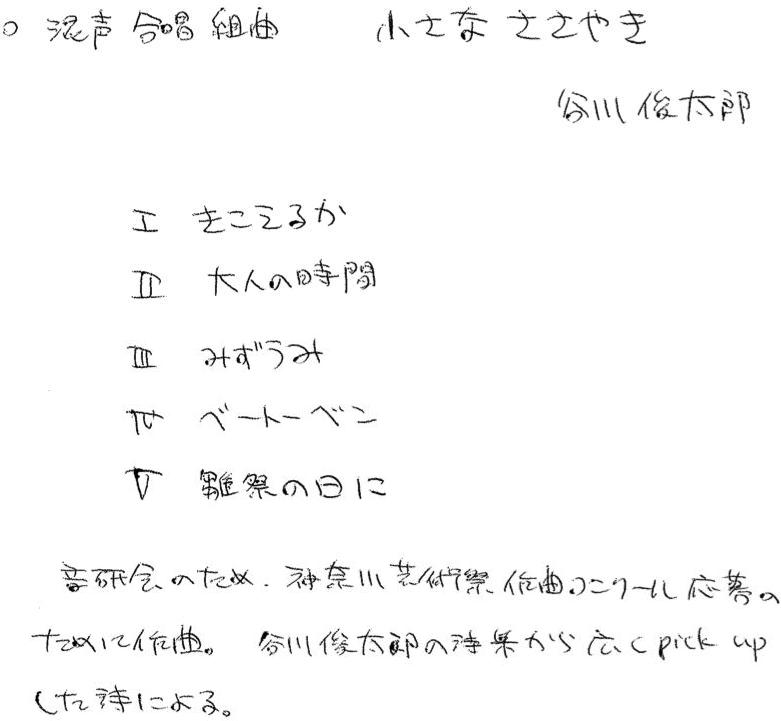 ○ 混声合唱組曲 小さなささやき
谷川俊太郎
Ⅰ きこえるか
Ⅱ 大人の時間
Ⅲ みずうみ
Ⅳ ベートーベン
Ⅴ 雛祭の日に
音研会のため、神奈川芸術祭作曲コンクール応募の
ために作曲。 谷川俊太郎の詩集から広くpick up
した詩による。